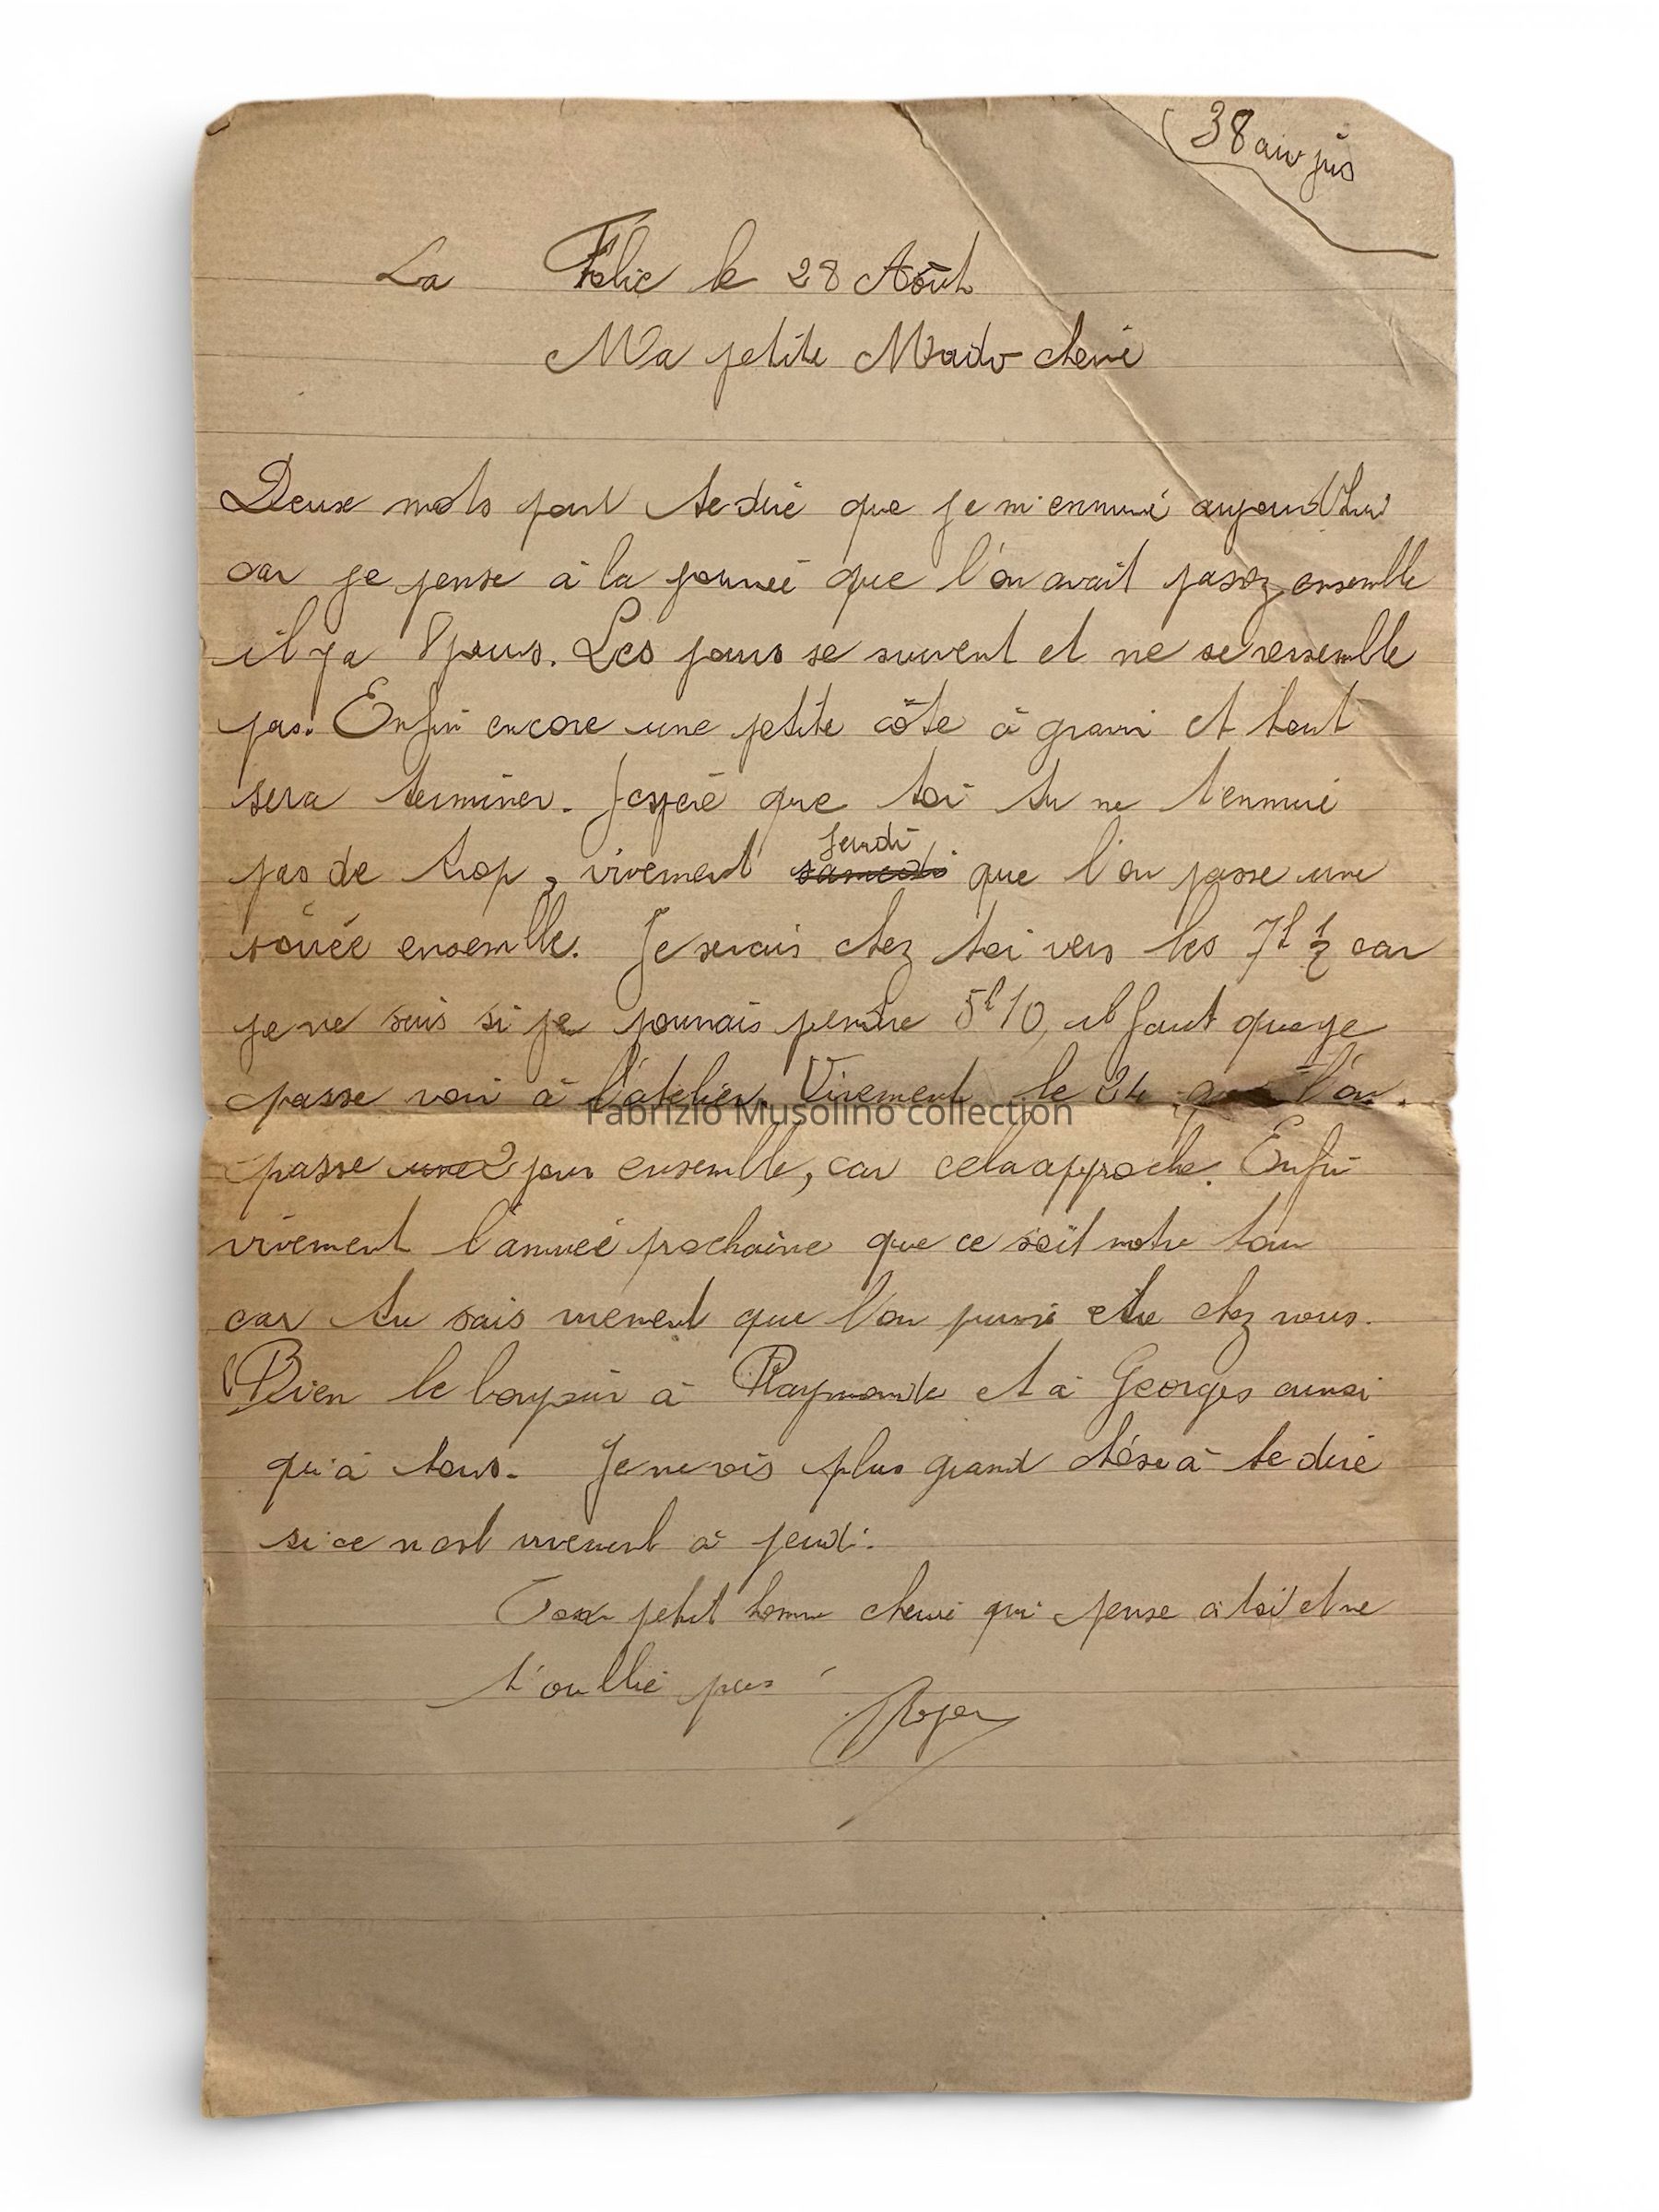 38 au jus
La Folie le 28 Août
Ma petite Mado cherie
Deux mots pour te dire que je m'ennuie aujourd'hui
car je pense à la journeé que l'on avait passez ensemble
il y a 8 jours. Les jours se suivent et ne se ressemble
pas. Enfin encore une petite côte à gravir et tout
sera terminer. J'espere que toi tu ne t'ennuie
jeudi
pas de trop, vivement samedi que l'on passe une
soirée ensemble. Je serais chez toi vers les 7h ½ car
je ne sais si je pourrais prendre 5h10, il faut que je
passe voir à l'atelier. Vivement le 24 que l'on
passe une 2 jours ensemble, car cela approche. Enfin
vivement l'anneé prochaine que ce soit notre tour
car tu sais vivement que l'on puisse etre chez nous.
Bien le bonjour à Raymonde et à Georges ainsi
qu'à tous. Je ne vois plus grand chose à te dire
si ce n'est vivement à jeudi.
Ton petit homme cheri qui pense à toi et ne
t'oublie pas
Roger
Fabrizio Musolino collection